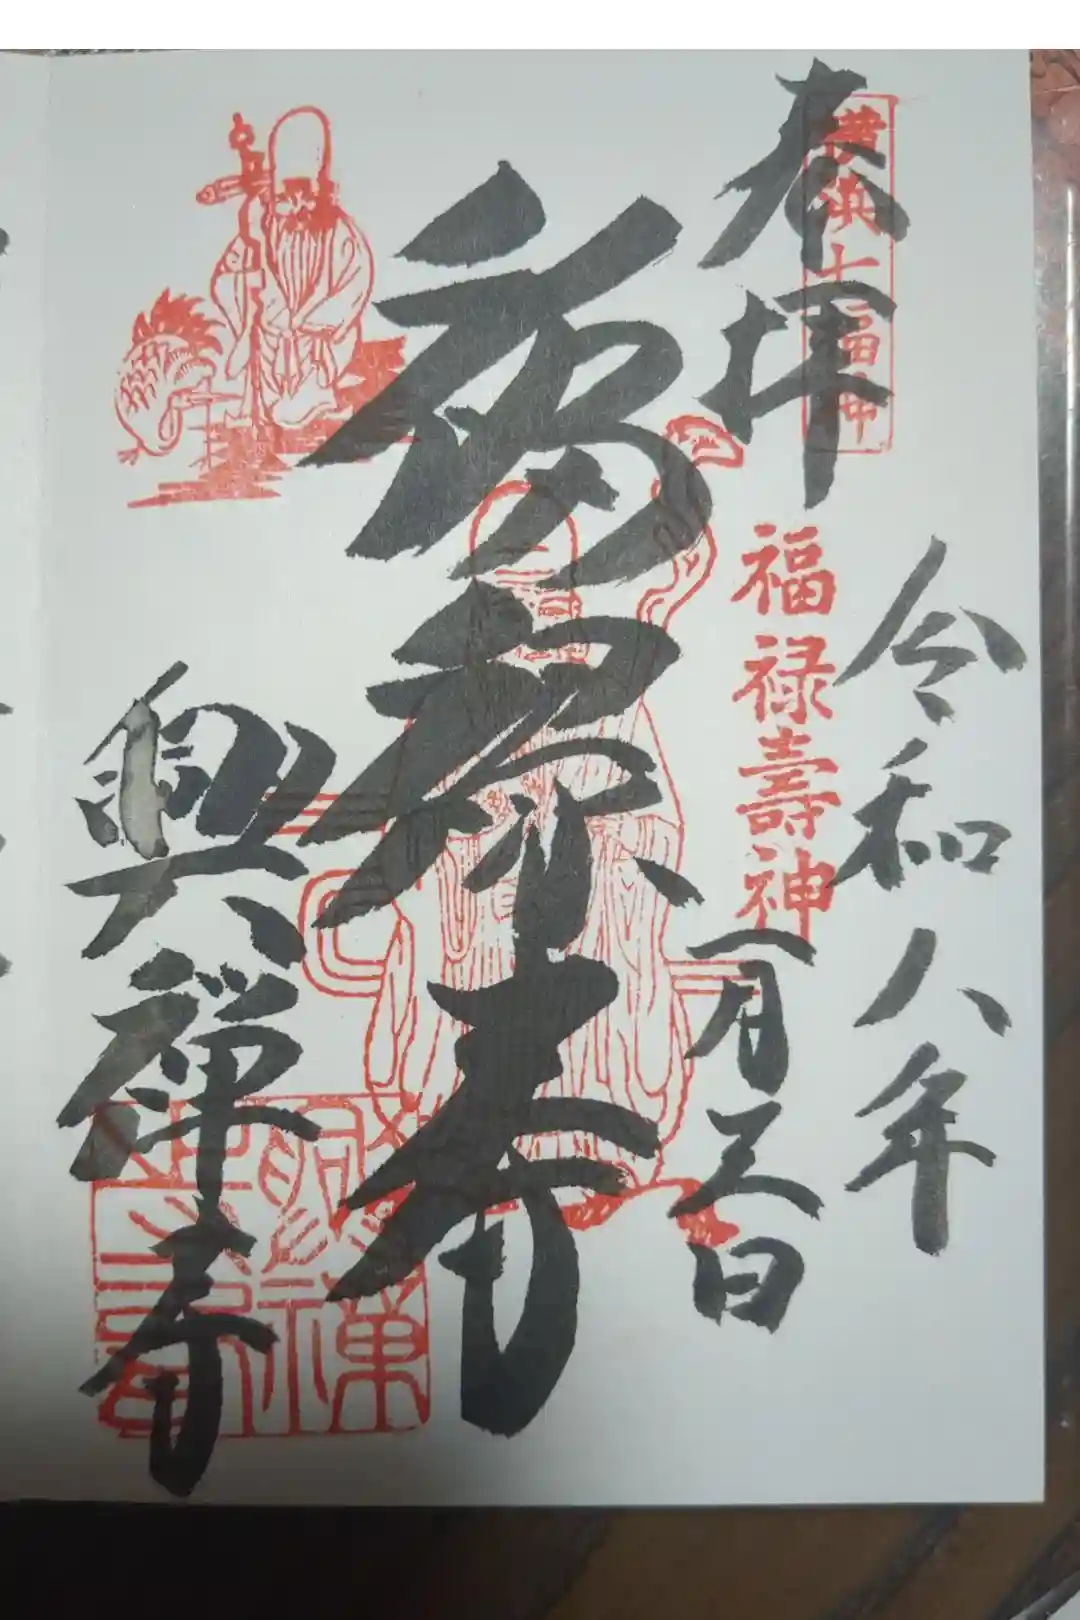 奉拝
横浜七福神
令和八年
福禄壽神
一月三日
福禄寿
興禅寺